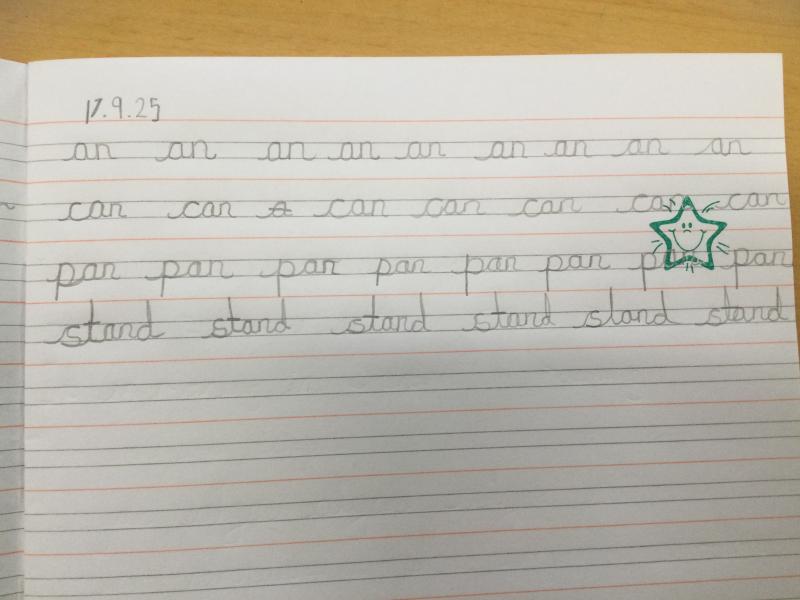 17.9.25
an an an an an an an an an
can can can can can can can
pan pan pan pan pan pan pan pan
stand stand stand stand stand stand